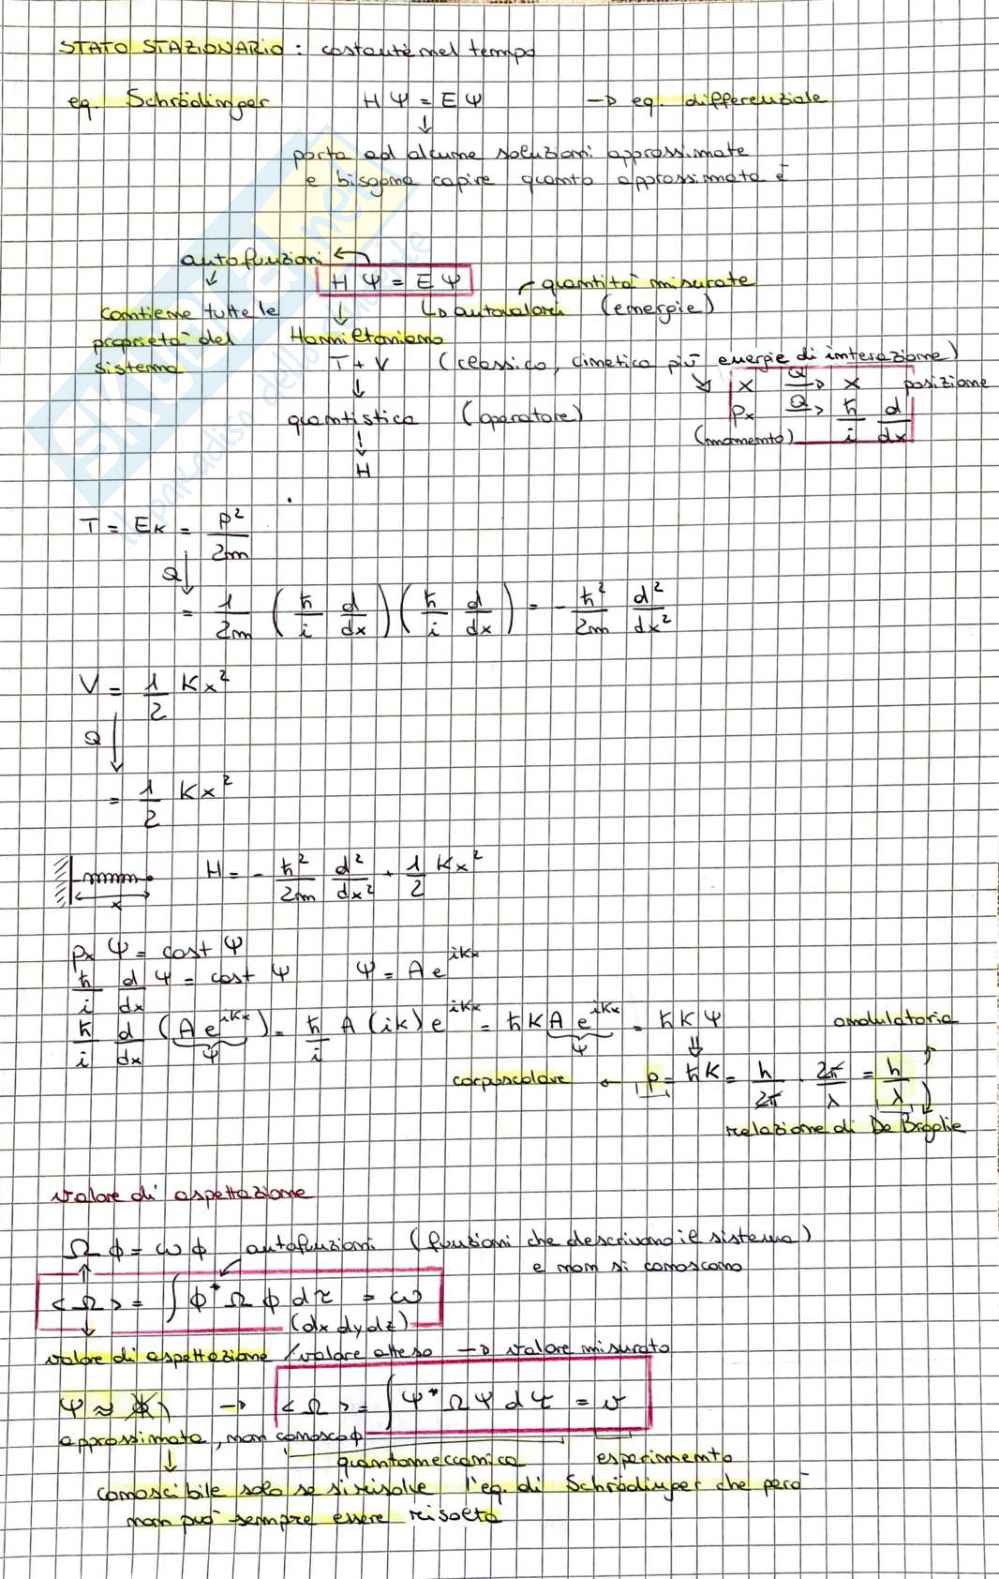 STATO STAZIONARIO : costante nel tempo
eq. Schrödinger H Ψ = E Ψ → eq. differenziale
↓
porta ad alcune soluzioni approssimate
e bisogna capire quanto approssimata è
autofunzioni ←
↓ H Ψ = E Ψ quantità misurate
contiene tutte le ↓ ↳ autovalori (energie)
proprietà del Hamiltoniano
sistema T + V (classico, cinetica più energie di interazione)
↓ ↘ x Q→ x posizione
quantistica (operatore) Px Q→ ħ/i d/dx
↓ (momento)
H
T = EK = P²/2m
Q↓
= 1/2m (ħ/i d/dx) (ħ/i d/dx) = - ħ²/2m d²/dx²
V = 1/2 Kx²
Q↓
= 1/2 Kx²
H = - ħ²/2m d²/dx² + 1/2 Kx²
x
Px Ψ = cost Ψ
ħ/i d/dx Ψ = cost Ψ Ψ = A e^ikx
ħ/i d/dx (A e^ikx) = ħ/i A (ik) e^ikx = ħK A e^ikx = ħK Ψ ondulatoria
Ψ Ψ ⇓
corpuscolare ← P = ħK = h/2π · 2π/λ = h/λ
relazione di De Broglie
valore di aspettazione
Ω ϕ = ω ϕ autofunzioni (funzioni che descrivono il sistema)
e non si conoscono
< Ω > = ∫ ϕ* Ω ϕ dτ = ω
(dx dy dz)
valore di aspettazione / valore atteso → valore misurato
Ψ ≈ → < Ω > = ∫ Ψ* Ω Ψ dτ = v
approssimata, non conosco ϕ
quantomeccanica esperimento
↓
conoscibile solo se si risolve l'eq. di Schrödinger che però
non può sempre essere risolta